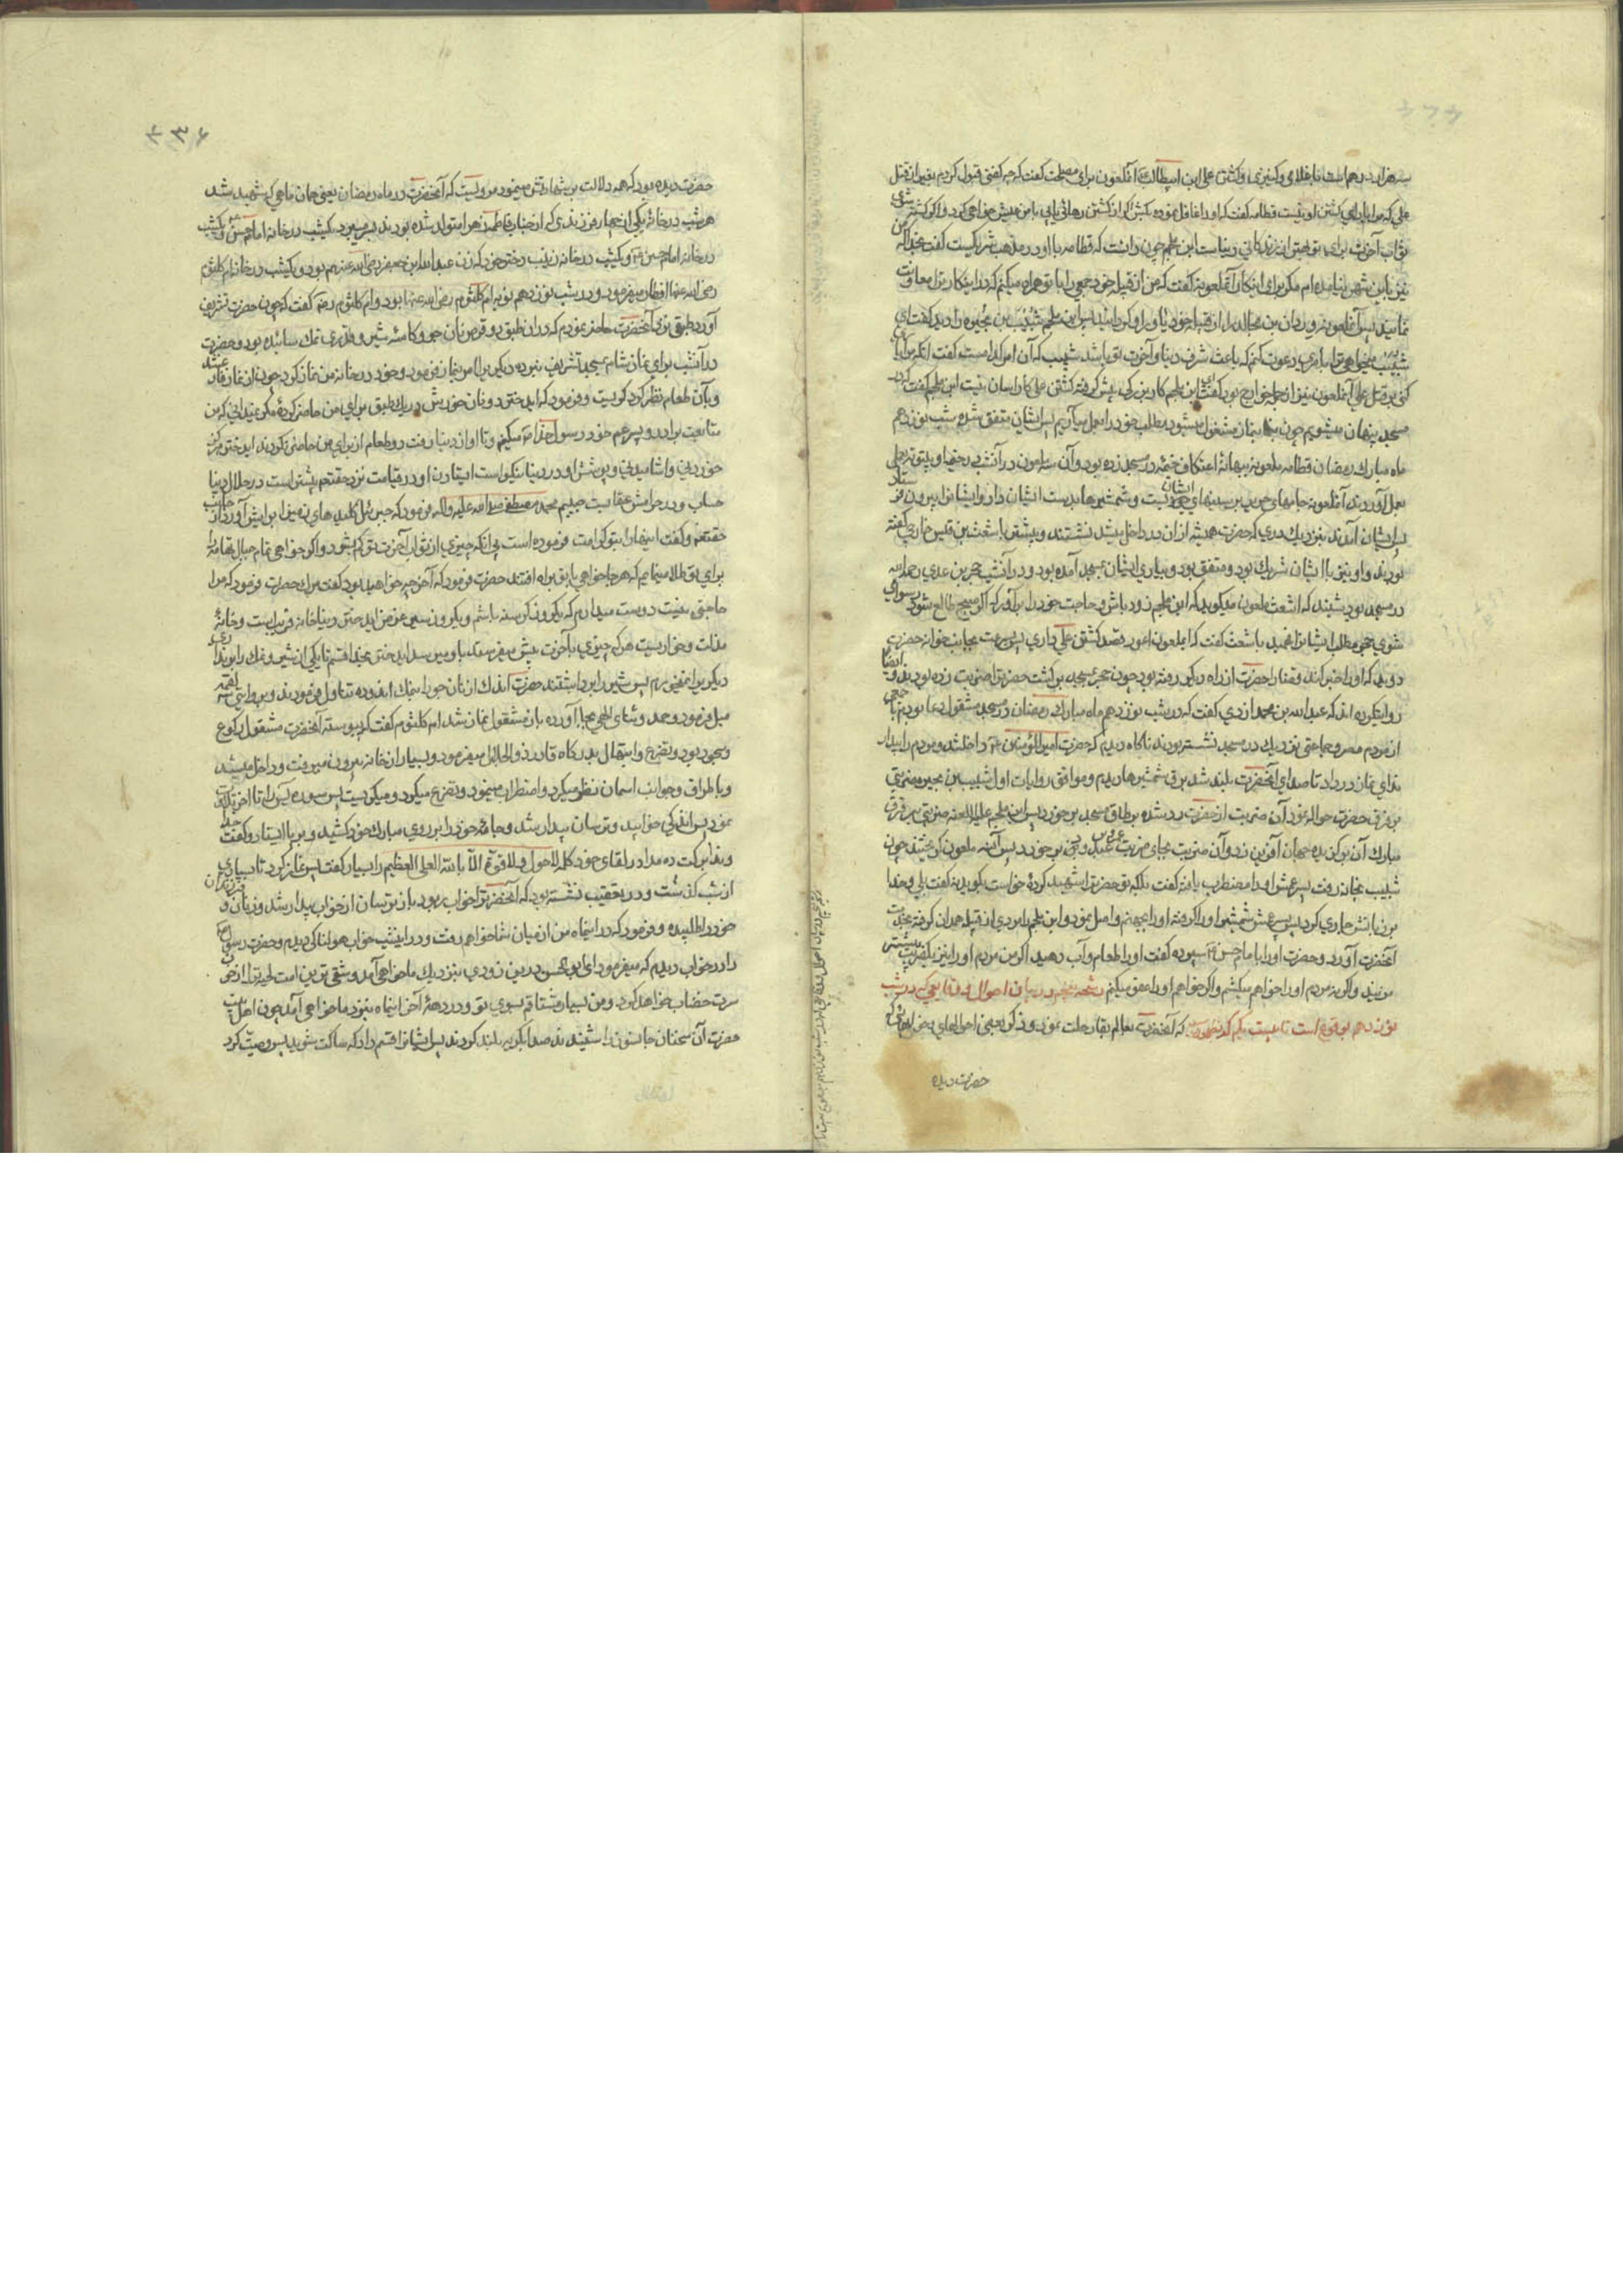 سه هزار درهم است با غلامی و کنیزی و کشتن علی ابن ابیطالب آنملعون برای مصلحت گفت که هر چه گفتی قبول کردم بغیر از قتل
علی که مرا یارای کشتن او نیست قطامه گفت که او را غافل نموده بکش اگر از کشتن رهائی یابی با من عیش خواهی کرد و اگر کشته شوی
ثواب آخرت برای تو بهتر از زندگانی دنیاست ابن ملجم چون دانست که قطامه با او در مذهب شریکست گفت بخدا که من
نیز باین شهر نیامده‌ام مگر برای اینکار آنملعونه گفت که من از قبیله خود جمعی را با تو همراه میکنم که در اینکار ترا معاونت
نمایند پس آنملعونه وردان بن مجالد را از قبیله خود یاور او گردانید پس ابن ملجم شبیب بن بجره را دید گفت ای
شبیب میخواهی ترا بامری دعوت کنم که باعث شرف دنیا و آخرت تو باشد شبیب گفت که آن امر کدامست گفت آنکه مرا یاری
کنی بر قتل علی آنملعون نیز از جمله خوارج بود گفت ای ابن ملجم کار بزرگی پیش گرفته کشتن علی کار آسان نیست ابن ملجم گفت که در
مسجد پنهان میشویم چون بنماز مشغول میشود مطلب خود را بعمل میآریم پس ایشان متفق شده شب نوزدهم
ماه مبارک رمضان قطامه ملعونه ببهانه اعتکاف خیمه در مسجد زده بود و آن سه ملعون در آنشب
بعمل آورده‌اند آنملعونه جامهای حریر بر سینهای ایشان بست و شمشیرها بدست ایشان داد و ایشانرا بیرون فرستاد
پس ایشان آمدند نزدیک دری که حضرت همیشه از آن در داخل میشد نشستند و پیشتر با اشعث بن قیس خارجی گفته
بودند و او نیز با ایشان شریک بود و متفق بود و بیاری ایشان بمسجد آمده بود و در آنشب حجر بن عدی رحمه الله
در مسجد بود شنید که اشعث ملعون میگوید که ای ابن ملجم زود باش و حاجت خود را برآور که اگر صبح طالع شود رسوا
شوی حجر مطلب ایشانرا فهمید باشعث گفت که ای ملعون اعور قصد کشتن علی داری پس بسرعت بجانب خانه حضرت
دوید که او را خبر کند قضا را حضرت از راه دیگر رفته بود چون حجر بمسجد برگشت حضرترا ضربت زده بودند و ایضا
روایت کرده‌اند که عبدالله بن محمد ازدی گفت که در شب نوزدهم ماه مبارک رمضان در مسجد مشغول دعا بودم با جمعی
از مردم مصر و جماعتی نزدیک در مسجد نشسته بودند ناگاه دیدم که حضرت امیرالمؤمنین داخل شد و مردم را بیدار
ندای نماز در داد تا صدای آنحضرت بلند شد برق شمشیرها دیدم و موافق روایات اول شبیب بن بجیره ضربتی
بر فرق حضرت حواله نمود آن ضربت از حضرت رد شده بر طاق مسجد برخورد پس ابن ملجم علیه اللعنه ضربتی بر فرق
مبارک آن برگزیده جهان آفرین زد و آن ضربت بجای ضربت عمرو بن عبد ود برخورد پس آن سه ملعون گریختند چون
شبیب بخانه رفت پسر عمش او را مضطرب یافته گفت بلکه تو حضرترا شهید کرده خواست بگوید نه گفت بلی و خدا
بر زبانش جاری کرد پس پسر عمش شمشیر او را گرفته او را بجهنم واصل نمود و ابن ملجم را مردی از قبیله همدان گرفته بخدمت
آنحضرت آورد و حضرت او را بامام حسن سپرده گفت او را طعام و آب دهید اگر من مردم او را نیز یک ضربت بیشتر
مزنید و اگر نه مردم او را خواهم میکشم و اگر خواهم او را عفو میکنم رشحه پنجم در بیان احوال و وقایعی که در شب
نوزدهم بوقوع است تا بیست یکم که آنحضرت بعالم بقا رحلت نموده و ذکر بعضی احوالهای
حضرت دیده
۴۳۶
حضرت دیده بود که همه دلالت بر شهادتش مینمود مرویست که آنحضرت در ماه رمضان یعنی همان ماهی که شهید شد
هر شب در خانه یکی از چهار فرزندی که از جناب فاطمه زهرا متولد شده بودند بسر میبرد یکشب در خانه امام حسن و یکشب
در خانه امام حسین و یکشب در خانه زینب دختر خود که زن عبدالله بن جعفر رضی الله عنهم بود و یکشب در خانه ام کلثوم
رضی الله عنها افطار میفرمود و در شب نوزدهم نوبه ام کلثوم رضی الله عنها بود و ام کلثوم گفت که چون حضرت تشریف
آورد طبقی نزد آنحضرت حاضر نمودم که در آن طبق دو قرص نان جو و کاسه شیر و قدری نمک سائیده بود و حضرت
در آنشب برای نماز شام بمسجد تشریف نبرده دیگری را امر بنماز فرمود و خود در خانه من نماز کرد چون از نماز فارغ شد
و بآن طعام نظر کرد گریست و فرمود که ای دختر دو نان خورش در یک طبق برای من حاضر کرده مگر نمیدانی که من
متابعت برادر و پسر عم خود رسول خدا میکنم و تا او از دنیا رفت دو طعام از برای من حاضر نکردند ای دختر هر که
خوردنی و آشامیدنی و پوشش او در دنیا نیکوتر است ایستادن او در قیامت نزد حقتعالی بیشتر است در حلال دنیا
حساب و در حرامش عقابست حبیبم محمد مصطفی صلی الله علیه و اله فرمود که جبرئیل کلیدهای زمین را برایش آورد از جانب
حقتعالی و گفت اینها را بتو کرامت فرموده است بی آنکه چیزی از ثواب آخرت تو کم شود و اگر خواهی تمام جبال تهامه را
برای تو طلا مینمایم که هر جا خواهی با تو براه افتند حضرت فرمود که آخر چه خواهد بود گفت مرگ حضرت فرمود که مرا
حاجتی نیست دوست میدارم که یکروز گرسنه باشم و یکروز سیر عرض ای دختر دنیا خانه فریبست و خانه
مذلت و خواریست هر که چیزی بآخرت پیش میفرستد باو میرسد ای دختر بخدا قسم تا یکی از شیر و نمک را برنداری
دیگر نمیخورم پس شیر را برداشتند حضرت اندک از نان جو را با نمک اندوده تناول فرمودند و بروایتی سه لقمه
میل فرمود و حمد و ثنای الهی بجا آورده باز مشغول نماز شد ام کلثوم گفت که پیوسته آنحضرت مشغول رکوع
و سجود بود و تضرع و ابتهال بدرگاه قادر ذوالجلال میفرمود و بسیار از خانه بیرون میرفت و داخل میشد
و باطراف و جوانب آسمان نظر میکرد و اضطراب مینمود و تضرع میکرد و میگریست پس سوره یس را تا آخر تلاوت
نمود پس اندکی خوابید و ترسان بیدار شد و جامه خود را بر روی مبارک خود کشید و بر پا ایستاد و گفت
خداوندا برکت ده مرا در لقای خود کلمه لا حول ولا قوة الا بالله العلی العظیم را بسیار گفت پس نماز کرد تا بسیاری
از شب گذشت و در تعقیب نشسته بود که آنحضرترا خواب ربود باز ترسان از خواب بیدار شد و زنان و فرزندان
خود را طلبیده و فرمود که در اینماه من از میان شما خواهم رفت و در اینشب خواب هولناکی دیدم و حضرت رسول
را در خواب دیدم که میفرمود ای ابوالحسن درین زودی بنزدیک ما خواهی آمد و شقی ترین امت لحیه ترا از خون
سرت خضاب خواهد کرد و من بسیار مشتاقم بسوی تو و در دهه آخر اینماه بنزد ما خواهی آمد چون اهل بیت
حضرت آن سخنان جانسوز را شنیدند صدا بگریه بلند کردند پس ایشانرا قسم داد که ساکت شوید پس وصیت کرد